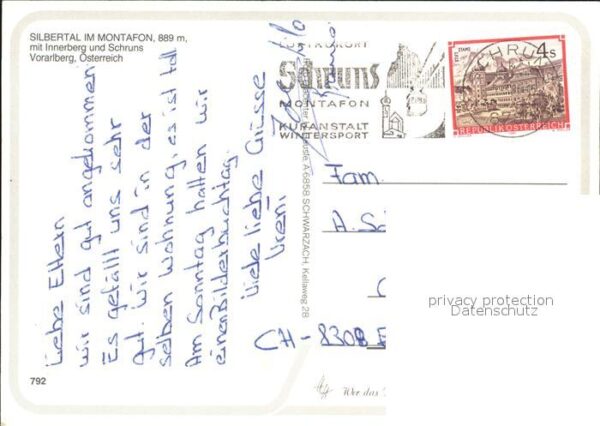 SILBERTAL IM MONTAFON, 889 m,
mit Innerberg und Schruns
Vorarlberg, Österreich
Liebe Eltern
Wir sind gut angekommen
Es gefällt uns sehr
gut. Wir sind in der
selben Wohnung, es ist toll
Am Sonntag hatten wir
einen Bilderbuchtag.
Viele liebe Grüsse
Vreni
LUFTKURORT
Schruns
MONTAFON
KURANSTALT
WINTERSPORT
SCHRUNS
STIFT STAMS
4s
REPUBLIK ÖSTERREICH
A-6858 SCHWARZACH, Kellaweg 28
Fam.
A.
CH - 8308
privacy protection
Datenschutz
792
Wer das